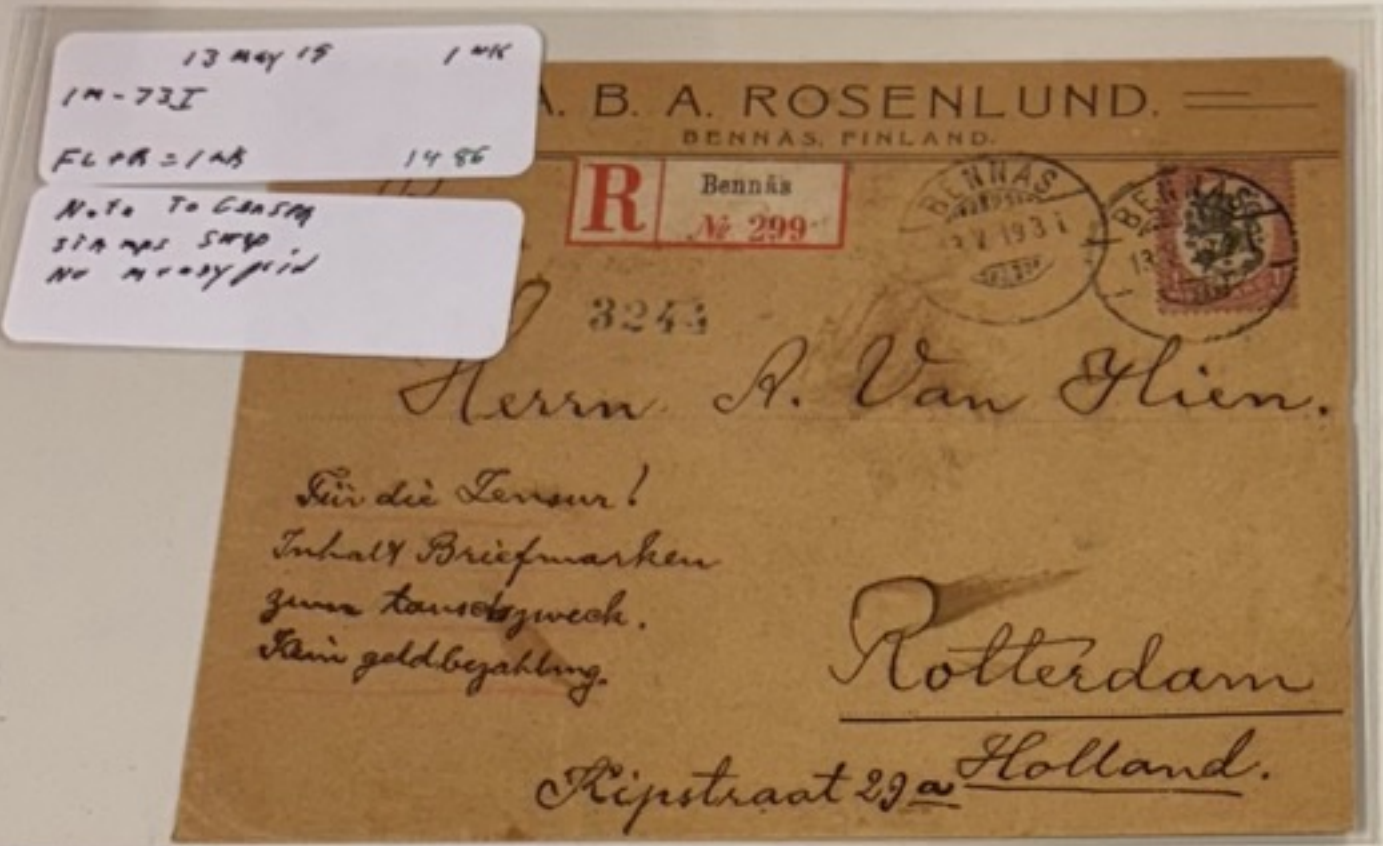 13 May 19 1 mk
1M-73I
FL+R=1mk 1486
Note To Censor
stamps swap
No money paid
A. B. A. ROSENLUND.
BENNÄS, FINLAND.
R Bennäs
№ 299
BENNÄS
13.V.19 3 i
BENNÄS
13
3244
Herrn A. Van Hien.
Für die Zensur!
Inhalt Briefmarken
zum tauschzweck.
Kein geldbezahlung.
Rotterdam
Holland.
Kipstraat 29a